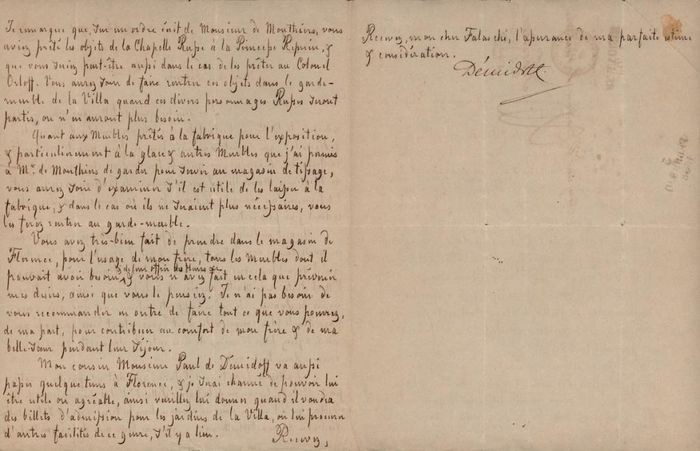 Je remarque que sur un ordre écrit de Monsieur de Monthiers, vous
avez prêté les objets de la Chapelle Russe à la Princesse Repnin, &
que vous seriez peut-être aussi dans le cas de les prêter au Colonel
Orloff. Vous aurez soin de faire rentrer ces objets dans le garde-
meuble de la Villa quand ces divers personnages Russes seront
partis, ou n'en auront plus besoin.
Quant aux Meubles prêtés à la fabrique pour l'exposition,
& particulièrement à la glace & autres Meubles que j'ai permis
à Mr. de Monthiers de garder pour servir au magasin de tissage,
vous aurez soin d'examiner s'il est utile de les laisser à la
fabrique, & dans le cas où ils ne seraient plus nécessaires, vous
les ferez rentrer au garde-meuble.
Vous avez très-bien fait de prendre dans le magasin de
Florence, pour l'usage de mon frère, tous les Meubles dont il
pouvait avoir besoin, & de lui offrir des fleurs & vous n'avez fait en cela que prévenir
mes désirs, ainsi que vous le pensiez. Je n'ai pas besoin de
vous recommander en outre de faire tout ce que vous pourrez,
de ma part, pour contribuer au comfort de mon frère & de ma
belle-sœur pendant leur séjour.
Mon cousin Monsieur Paul de Demidoff va aussi
passer quelque tems à Florence, & je serai charmé de pouvoir lui
être utile ou agréable, ainsi veuillez lui donner quand il voudra
des billets d'admission pour les jardins de la Villa, ou lui procurer
d'autres facilités de ce genre, s'il y a lieu.
Recevez,
Recevez, mon cher Falasché, l'assurance de ma parfaite estime
& considération.
Démidoff